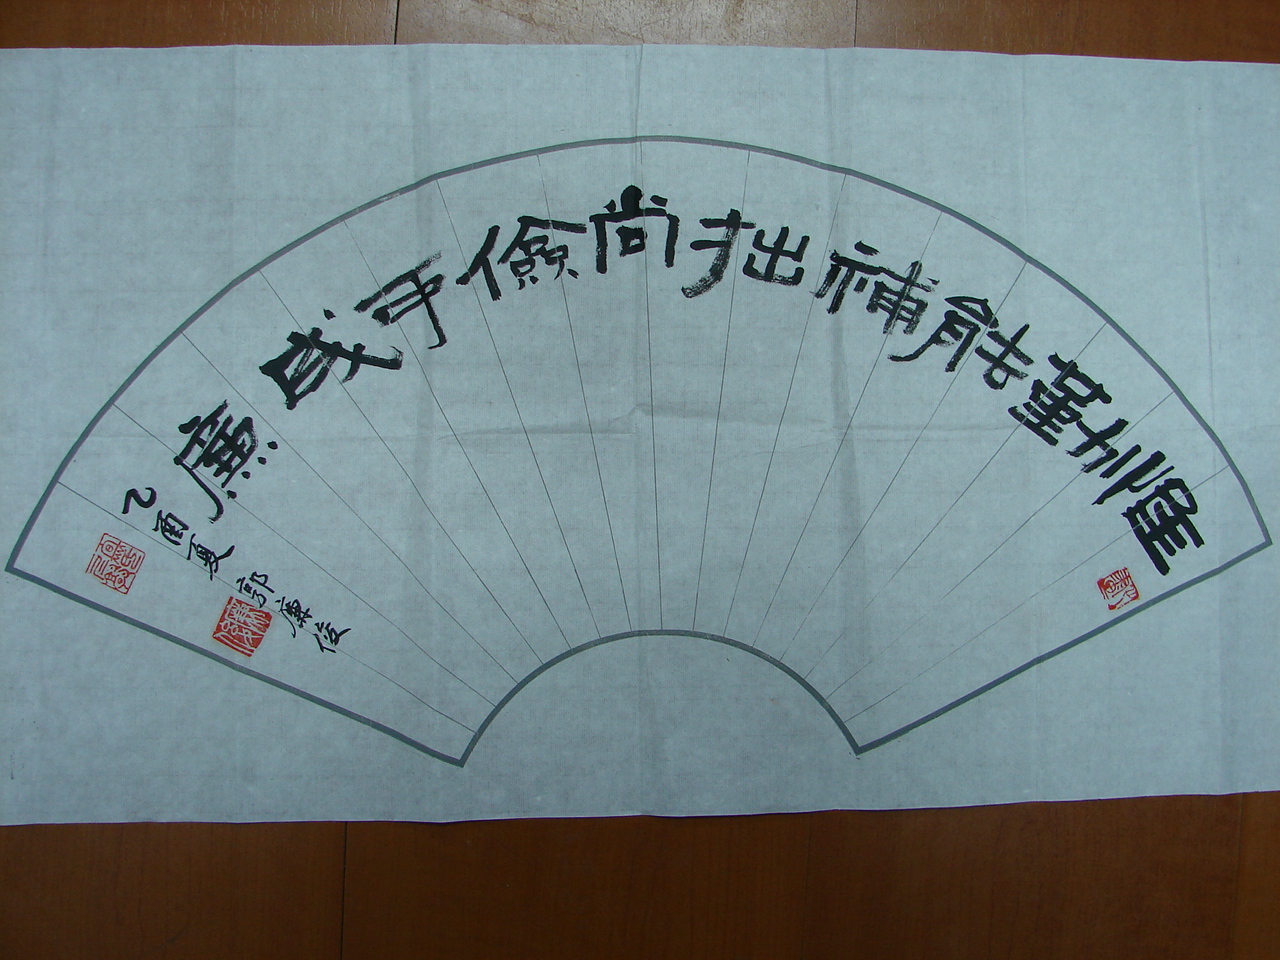 惟勤能補拙尚儉可成廉
乙酉夏
郭廉俊